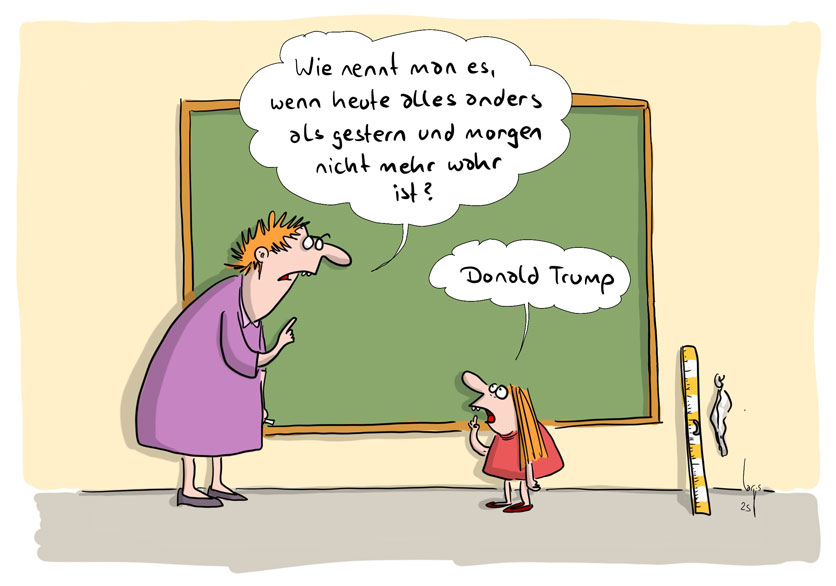 Wie nennt man es,
wenn heute alles anders
als gestern und morgen
nicht mehr wahr
ist?
Donald Trump
25